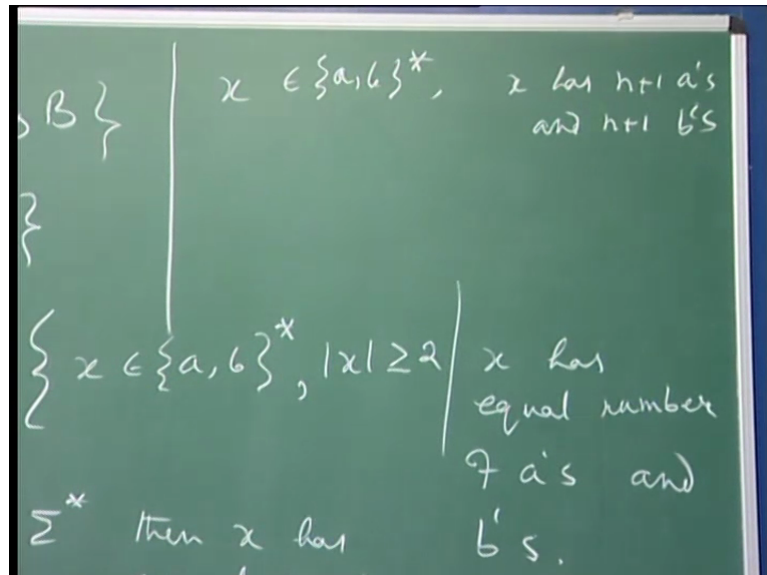 , B }
x ∈ {a, b}*, x has n+1 a's
and n+1 b's
}
{ x ∈ {a, b}*, |x| ≥ 2 | x has
equal number
of a's and
Σ* then x has
b's.